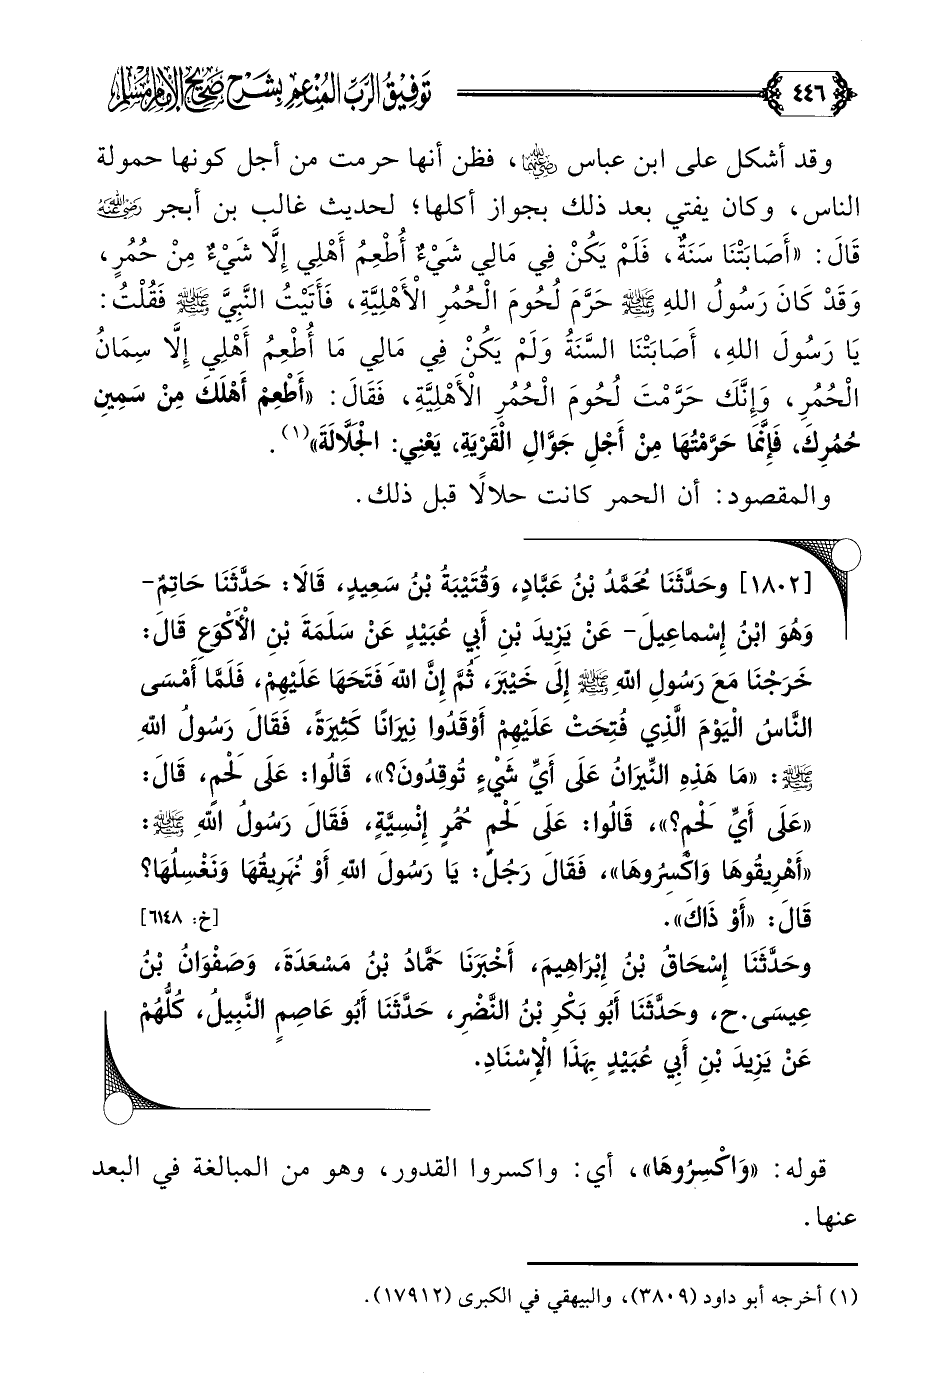 ٤٤٦
توفيق الرب المنعم بشرح صحيح الإمام مسلم
وقد أشكل على ابن عباس رضي الله عنهما، فظن أنها حرمت من أجل كونها حمولة
الناس، وكان يفتي بعد ذلك بجواز أكلها؛ لحديث غالب بن أبجر رضي الله عنه
قَالَ: «أَصَابَتْنَا سَنَةٌ، فَلَمْ يَكُنْ فِي مَالِي شَيْءٌ أُطْعِمُ أَهْلِي إِلَّا شَيْءٌ مِنْ حُمُرٍ،
وَقَدْ كَانَ رَسُولُ اللهِ ﷺ حَرَّمَ لُحُومَ الْحُمُرِ الْأَهْلِيَّةِ، فَأَتَيْتُ النَّبِيَّ ﷺ فَقُلْتُ:
يَا رَسُولَ اللهِ، أَصَابَتْنَا السَّنَةُ وَلَمْ يَكُنْ فِي مَالِي مَا أُطْعِمُ أَهْلِي إِلَّا سِمَانُ
الْحُمُرِ، وَإِنَّكَ حَرَّمْتَ لُحُومَ الْحُمُرِ الْأَهْلِيَّةِ، فَقَالَ: «أَطْعِمْ أَهْلَكَ مِنْ سَمِينِ
حُمُرِكَ، فَإِنَّمَا حَرَّمْتُهَا مِنْ أَجْلِ جَوَّالِ الْقَرْيَةِ، يَعْنِي: الْجَلَّالَةَ»(١).
والمقصود: أن الحمر كانت حلالًا قبل ذلك.
[١٨٠٢] وحَدَّثَنَا مُحَمَّدُ بْنُ عَبَّادٍ، وَقُتَيْبَةُ بْنُ سَعِيدٍ، قَالَا: حَدَّثَنَا حَاتِمٌ-
وَهُوَ ابْنُ إِسْماعِيلَ- عَنْ يَزِيدَ بْنِ أَبِي عُبَيْدٍ عَنْ سَلَمَةَ بْنِ الْأَكْوَعِ قَالَ:
خَرَجْنَا مَعَ رَسُولِ اللهِ ﷺ إِلَى خَيْبَرَ، ثُمَّ إِنَّ اللهَ فَتَحَهَا عَلَيْهِمْ، فَلَمَّا أَمْسَى
النَّاسُ الْيَوْمَ الَّذِي فُتِحَتْ عَلَيْهِمْ أَوْقَدُوا نِيرَانًا كَثِيرَةً، فَقَالَ رَسُولُ اللهِ
ﷺ: «مَا هَذِهِ النِّيرَانُ عَلَى أَيِّ شَيْءٍ تُوقِدُونَ؟»، قَالُوا: عَلَى لَحْمٍ، قَالَ:
«عَلَى أَيِّ لَحْمٍ؟»، قَالُوا: عَلَى لَحْمِ حُمُرٍ إِنْسِيَّةٍ، فَقَالَ رَسُولُ اللهِ ﷺ:
«أَهْرِيقُوهَا وَاكْسِرُوهَا»، فَقَالَ رَجُلٌ: يَا رَسُولَ اللهِ أَوْ نُهَرِيقُهَا وَنَغْسِلُهَا؟
قَالَ: «أَوْ ذَاكَ». [خ: ٦١٤٨]
وحَدَّثَنَا إِسْحَاقُ بْنُ إِبْرَاهِيمَ، أَخْبَرَنَا حَمَّادُ بْنُ مَسْعَدَةَ، وَصَفْوَانُ بْنُ
عِيسَى.ح، وحَدَّثَنَا أَبُو بَكْرِ بْنُ النَّضْرِ، حَدَّثَنَا أَبُو عَاصِمٍ النَّبِيلُ، كُلُّهُمْ
عَنْ يَزِيدَ بْنِ أَبِي عُبَيْدٍ بِهَذَا الْإِسْنَادِ.
قوله: «وَاكْسِرُوهَا»، أي: واكسروا القدور، وهو من المبالغة في البعد
عنها.
(١) أخرجه أبو داود (٣٨٠٩)، والبيهقي في الكبرى (١٧٩١٢).